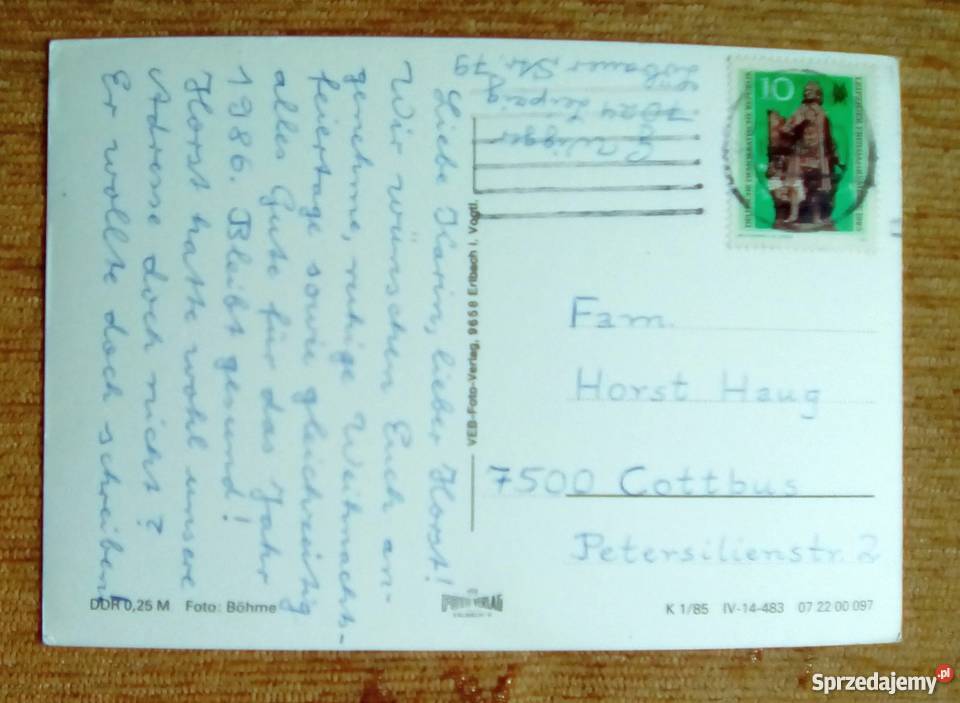 Liebe Karin, lieber Horst!
Wir wünschen Euch an-
genehme, ruhige Weihnachts-
feiertage sowie gleichzeitig
alles Gute für das Jahr
1986. Bleibt gesund!
Horst hatte wohl unsere
Adresse doch nicht?
Er wollte doch schreiben!
7024 Leipzig
Str. 79
10
LEIPZIGER FRÜHJAHRSMESSE 1985
VEB-Foto-Verlag, 9658 Erlbach i. Vogtl.
Fam.
Horst Haug
7500 Cottbus
Petersilienstr. 2
DDR 0,25 M Foto: Böhme
FOTO VERLAG
K 1/85 IV-14-483 07 22 00 097
Sprzedajemy.pl